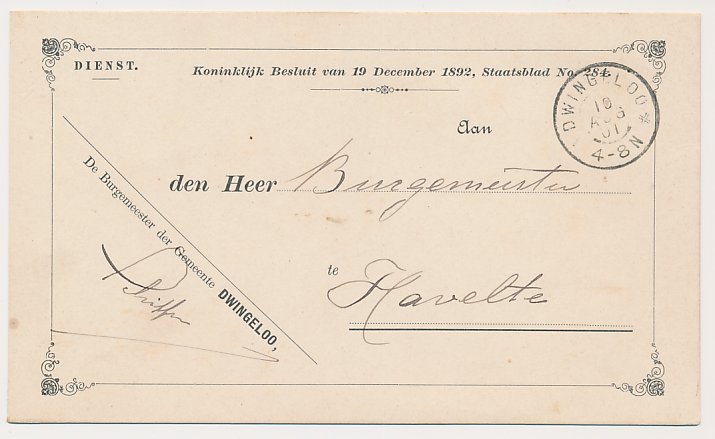 DIENST.
Koninklijk Besluit van 19 December 1892, Staatsblad No. 284.
DWINGELOO
10
AUG
01
4-8N
Aan
den Heer Burgemeester
te Havelte
De Burgemeester der Gemeente DWINGELOO,